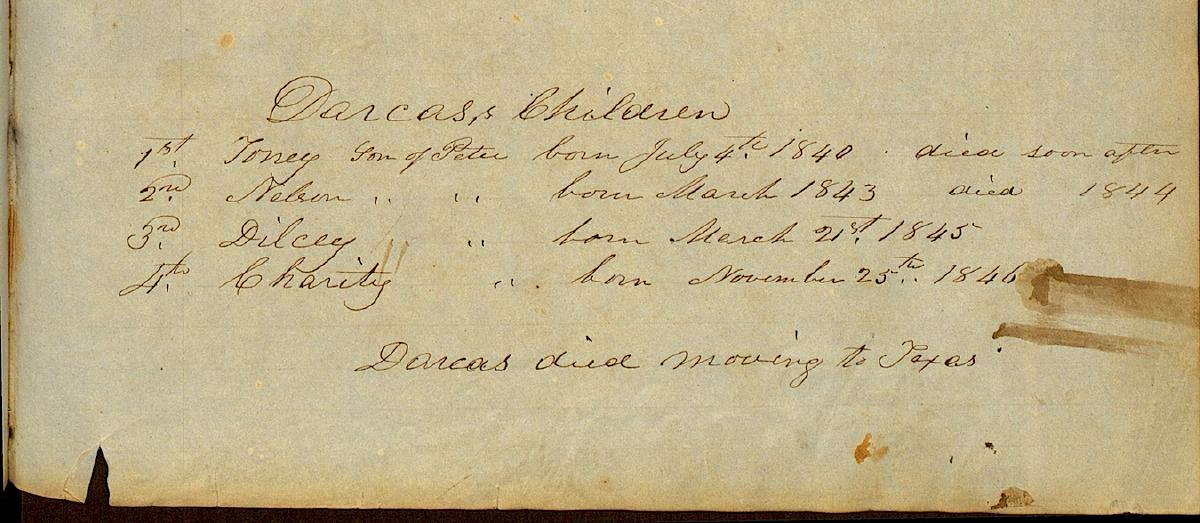 Darcas,s Children
1st. Toney Son of Peter born July 4th. 1840 . died soon after
2nd. Nelson " " born March 1843 died 1844
3rd. Dilcey " born March 21st. 1845
4th. Charity " . born November 25th.. 1846
Darcas died moving to Texas